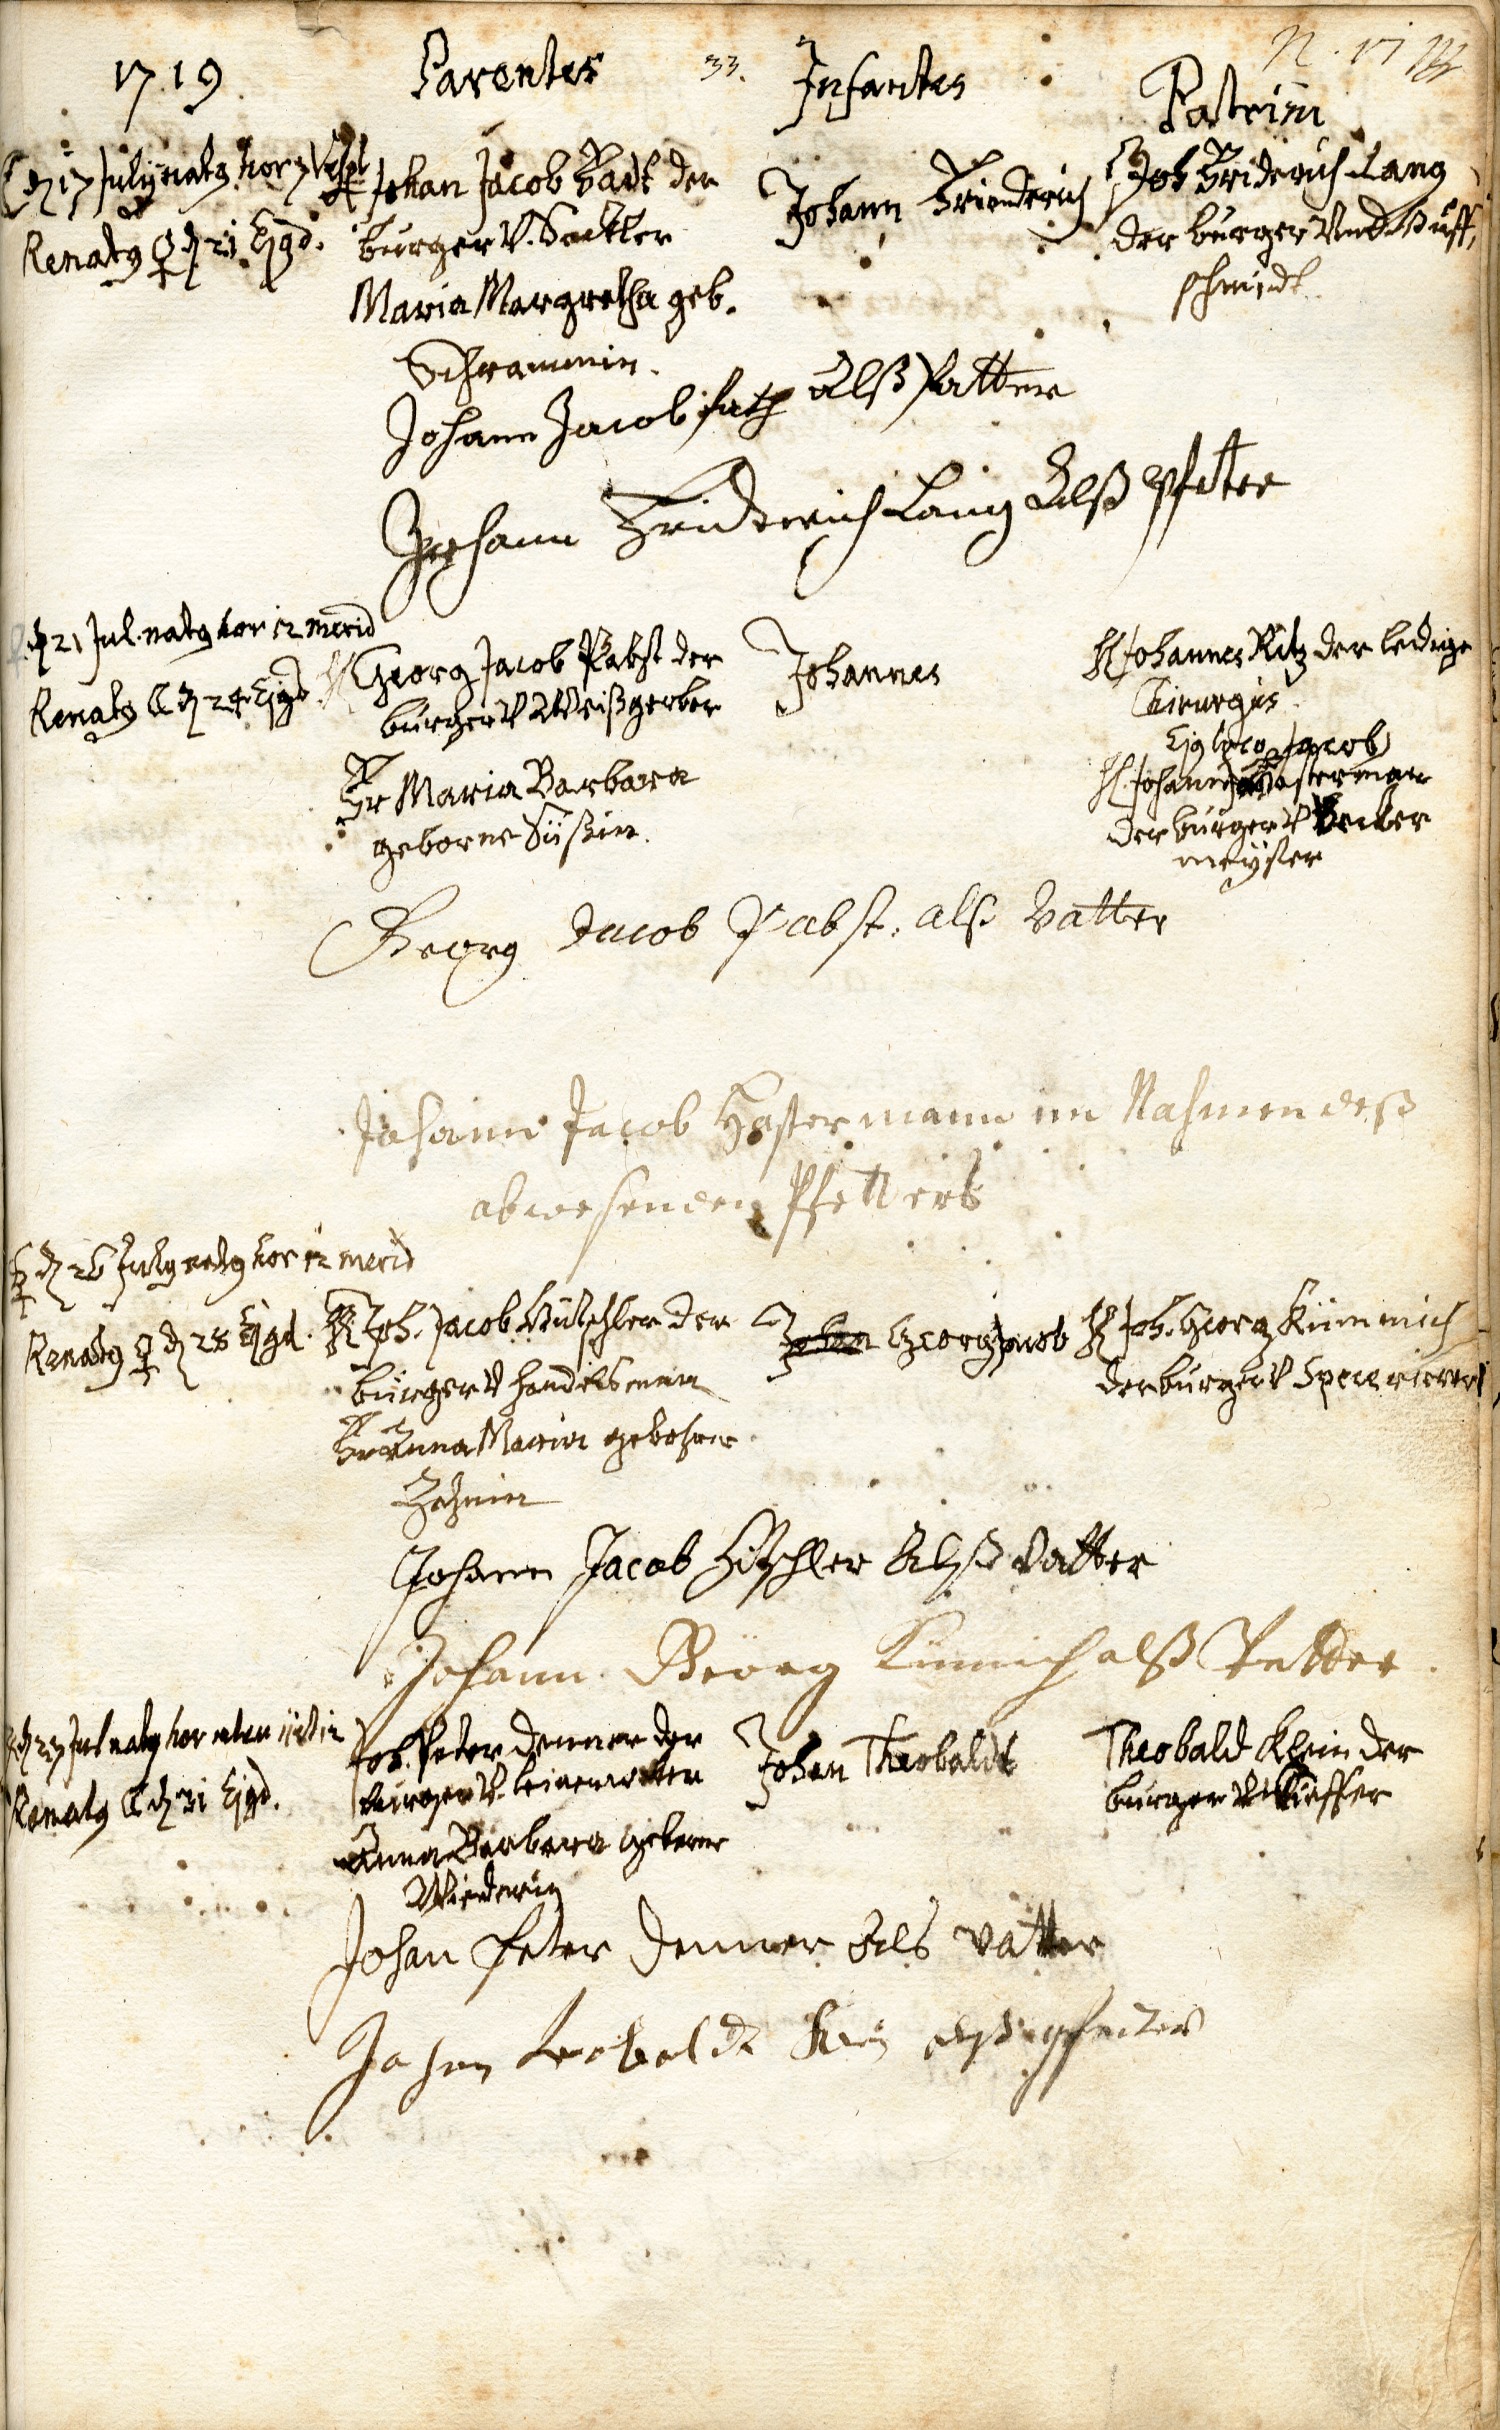 1719 Parentes 33. Infantes Patrini
N. 17
d 17 July nat9 hor 7 Vesp
Renat9 ♀ d 21 Ejgd.
Johan Jacob Vadt der
burger V. Sattler
Maria Margretha geb.
Schrammin.
Johann Friederich
Joh Friderich Lang
der burger Vndt Huff,
schmidt
Johann Jacob fath Alß Vatter
Johann Friderich Lang Alß pfetter
d 21 Jul. nat9 hor 12 merid
Renat9 ☾ d 24 Ejgd.
H Georg Jacob Pabst der
burger V Weißgerber
Fr Maria Barbara
geborne Süßin.
Johannes
H Johannes Ritz der ledige
Chirurgus.
Ejg loco Jacob
H. Johann Hastermann
der burger V Becker
meyster
Georg Jacob Pabst. alß Vatter
Johann Jacob Hastermann im Nahmen deß
abwesenden Pfetters
d 26 July nat9 hor 12 merid
Renat9 ♀ d 28 Ejgd.
H Joh. Jacob Hütschler der
burger V handelsmann
Fr Anna Maria gebohrne
Johan Georg Jacob
H Joh. Georg Kümmich
der burger V Specerierer
Johann Jacob Hitschler Alß Vatter
Johann Georg Kümich alß Petter.
d 27 Jul nat9 hor
Renat9 ☾ d 31 Ejgd.
Joh. Peter Denner der
burger V. leinenweber
Anna Barbara geborne
Wiederin
Johan Theobaldt
Theobald Klein der
burger V Kieffer
Johan Peter Denner Als Vatter
Johan Teobaldt Klein alß pfetter